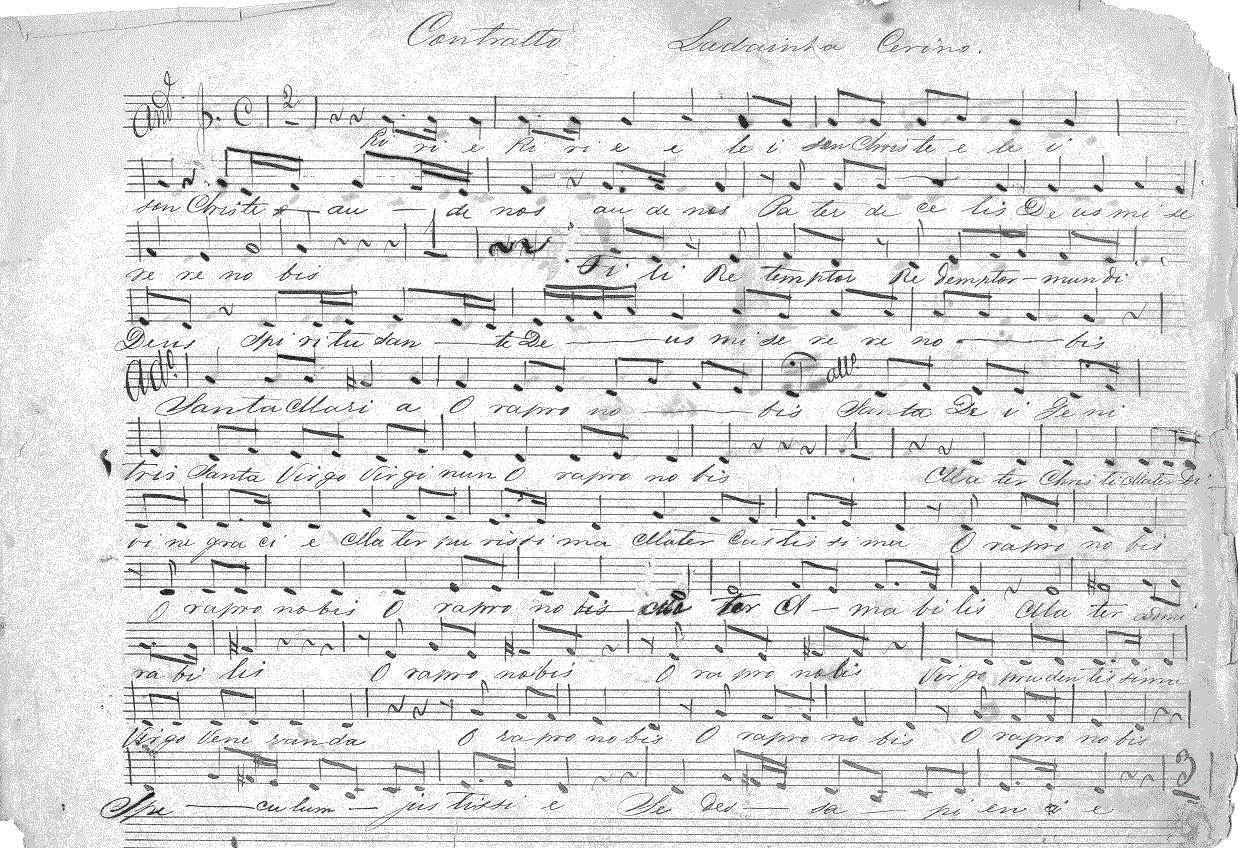 Contralto Ladainha Cirino.
And.e C 2
Ki ri e Ki ri e e le i son Christe e le i
son Christe au de nos au de nos Pa ter de ce lis De us mi se
re re no bis Fi li Re temptor Re demptor mundi
Deus Spi ritu san te De us mi se re re no bis
Ad.o all.o
Santa Mari a O rapro no bis Santa De i Je ni
tris Santa Virgo Virgi nun O rapro no bis Ma ter Christi Mater di
vi ne gra ci e Ma ter pu rissi ma Mater Castis si ma O rapro no bis
O rapro nobis O rapro no bis Ma ter A ma bi lis Ma ter admi
ra bi lis O rapro no bis O ra pro no bis Virgo prudentissima
Virgo Vene randa O ra pro no bis O rapro no bis O rapro no bis
Spe culum jus tissi e Se des sa pi en ci e